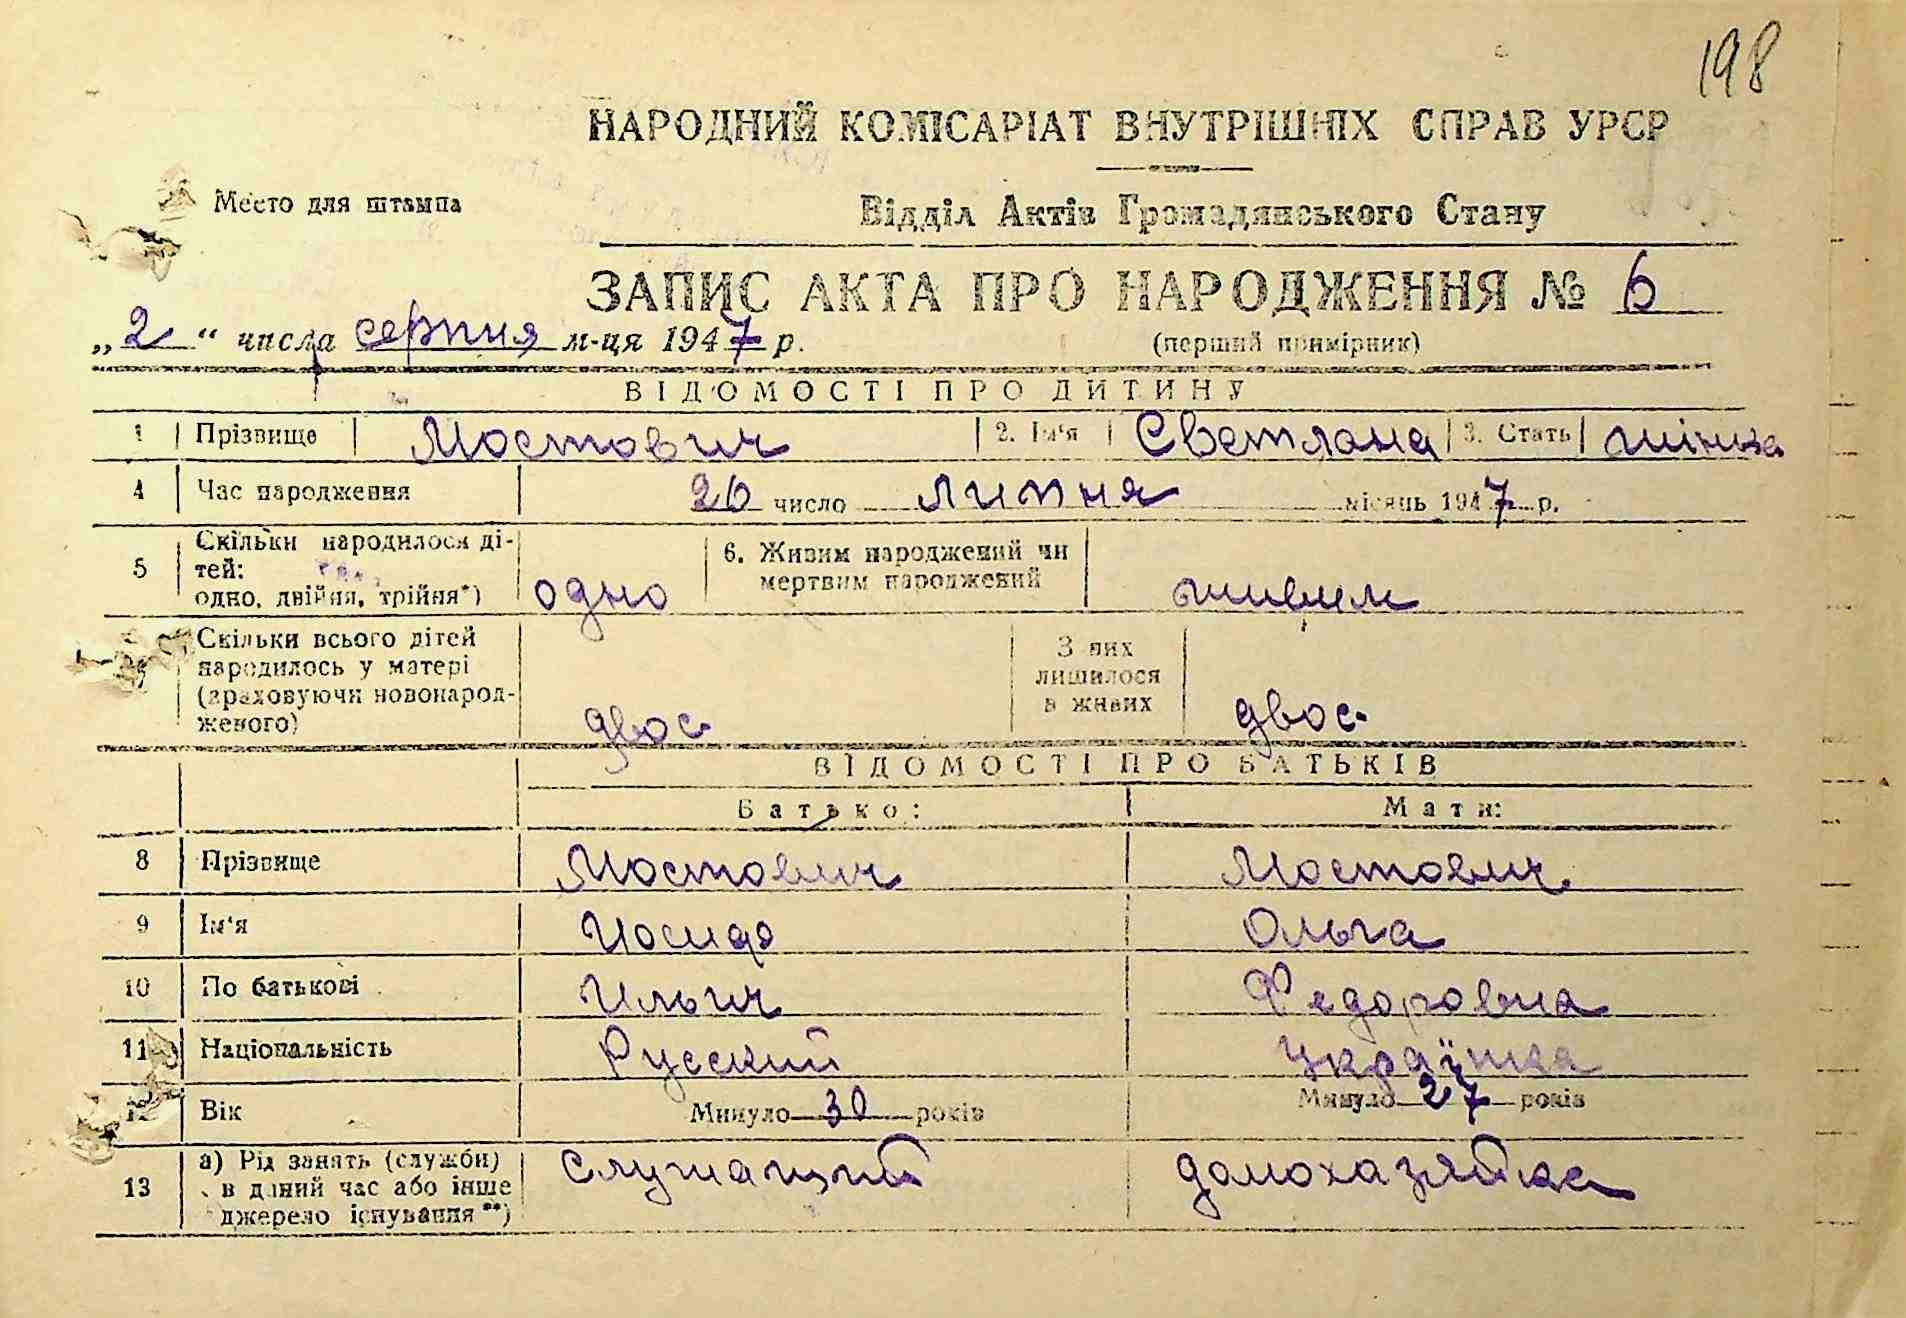 198
НАРОДНИЙ КОМІСАРІАТ ВНУТРІШНІХ СПРАВ УРСР
Место для штампа
Відділ Актів Громадянського Стану
ЗАПИС АКТА ПРО НАРОДЖЕННЯ № 6
„2“ числа серпня м-ця 1947 р.
(перший примірник)
ВІДОМОСТІ ПРО ДИТИНУ
1 Прізвище Мостович 2. Ім'я Светлана 3. Стать жіноча
4 Час народження 20 число липня місяць 1947 р.
5 Скільки народилося ді-
тей:
одно, двійня, трійня*) одно
6. Живим народжений чи
мертвим народжений живим
Скільки всього дітей
народилось у матері
(враховуючи новонарод-
женого) двоє
З них
лишилося
в живих двоє
ВІДОМОСТІ ПРО БАТЬКІВ
Батько: Мати:
8 Прізвище Мостович Мостович
9 Ім'я Иосиф Ольга
10 По батькові Ильич Федоровна
11 Національність Русский Українка
12 Вік Минуло 30 років Минуло 27 років
13 а) Рід занять (служби)
в даний час або інше
джерело існування**) Служащий домохазяйка